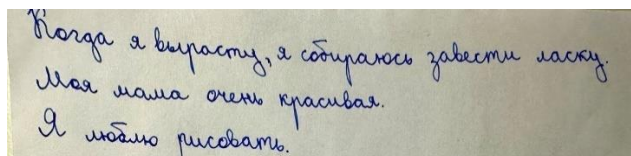 Когда я вырасту, я собираюсь завести ласку.
Моя мама очень красивая.
Я люблю рисовать.